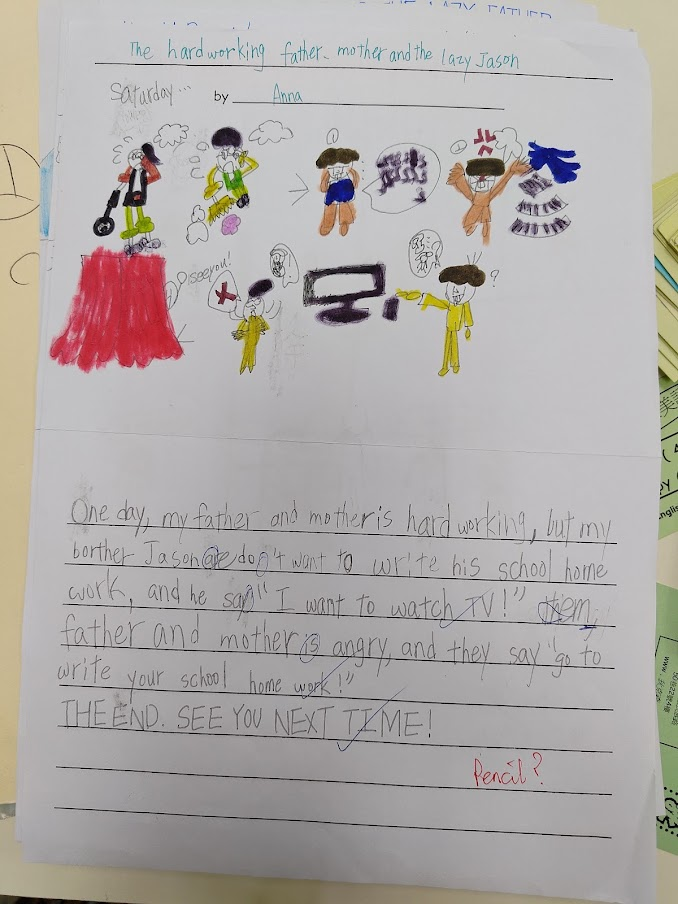 The hardworking father. mother and the lazy Jason
Saturday...
by Anna
I see you!
?
One day, my father and mother is hard working, but my
borther Jason don't want to write his school home
work, and he say "I want to watch TV!" them,
father and mother is angry, and they say "go to
write your school home work!"
THE END. SEE YOU NEXT TIME!
Pencil?